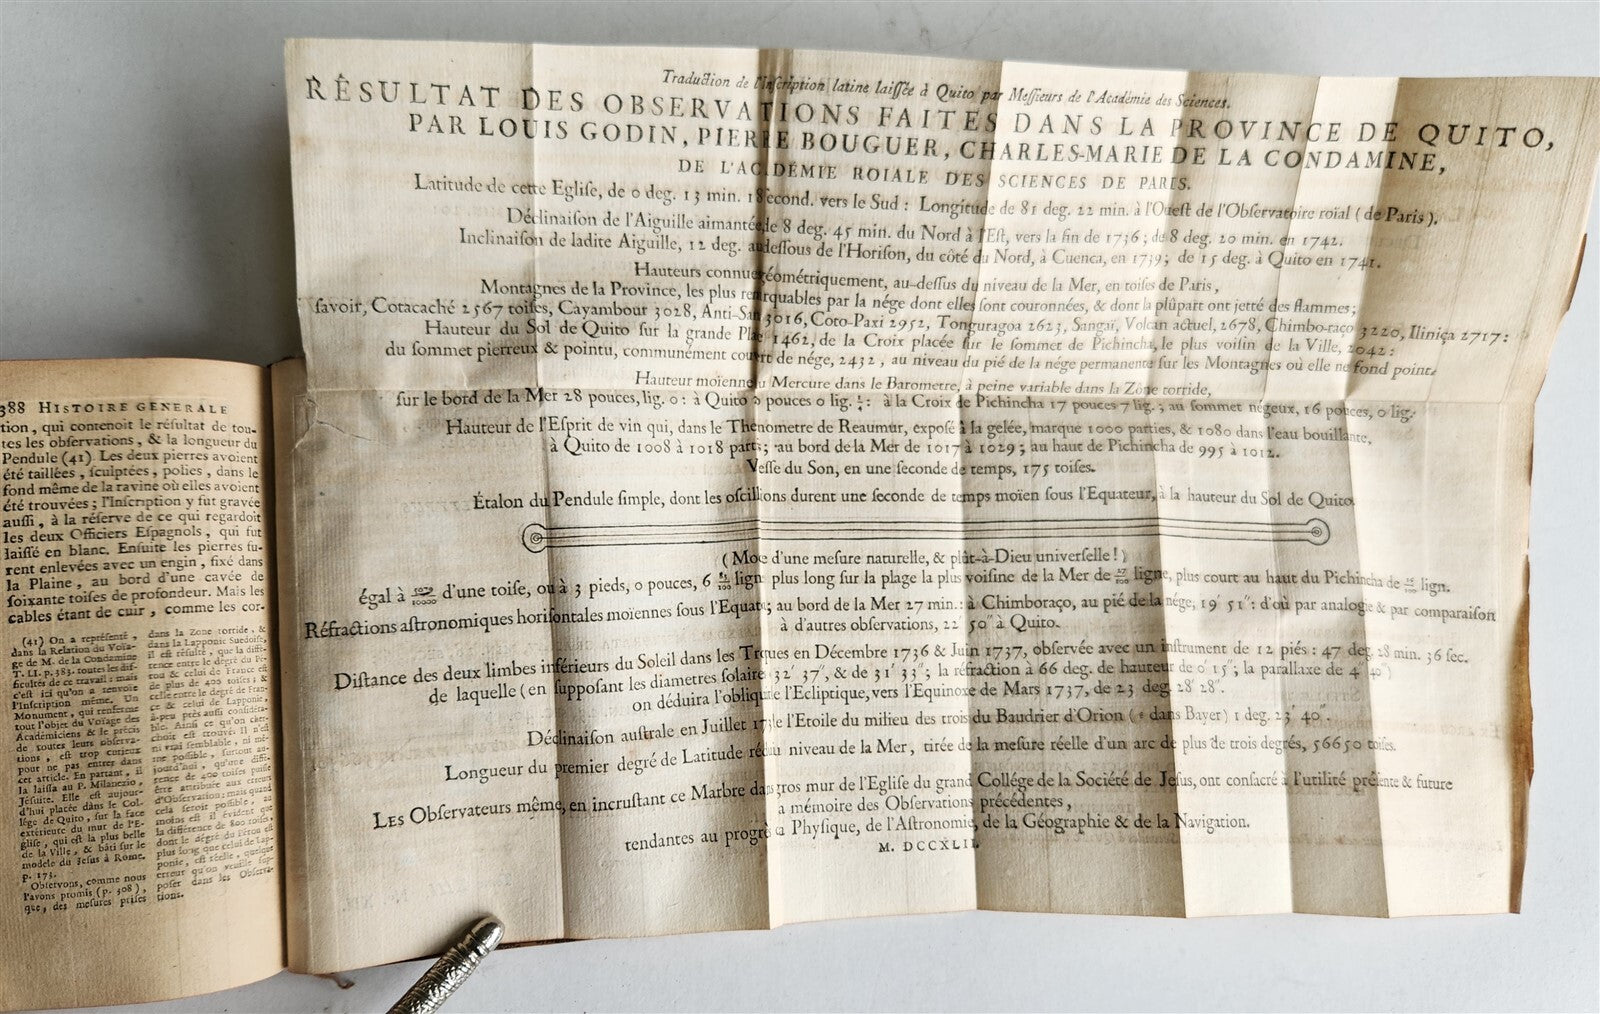 388 HISTOIRE GENERALE
tion, qui contenoit le résultat de tou-
tes les observations, & la longueur du
Pendule (41). Les deux pierres avoient
été taillées, sculptées, polies, dans le
fond même de la ravine où elles avoient
été trouvées; l'Inscription y fut gravée
aussi, à la réserve de ce qui regardoit
les deux Officiers Espagnols, qui fut
laissé en blanc. Ensuite les pierres fu-
rent enlevées avec un engin, fixé dans
la Plaine, au bord d'une cavée de
soixante toises de profondeur. Mais les
cables étant de cuir, comme les cor-
(41) On a représenté,
dans la Relation du Voïa-
ge de M. de la Condamine
T. LI. p. 383. toutes les dif-
ficultés de ce travail: mais
c'est ici qu'on a renvoïé
l'Inscription même. Un
Monument, qui renferme
tout l'objet du Voïage des
Académiciens & le précis
de toutes leurs observa-
tions, est trop curieux
pour ne pas entrer dans
cet article. En partant, il
la laissa au P. Milanezio,
Jésuite. Elle est aujour-
d'hui placée dans le Col-
lége de Quito, sur la face
extérieure du mur de l'E-
glise, qui est la plus belle
de la Ville, & bâti sur le
modele du Jesus à Rome.
p. 173.
Observons, comme nous
l'avons promis (p. 308),
que, des mesures prises
dans la Zone torride, &
dans la Lapponie Suedoise,
il est résulté, que la diffé-
rence entre le degré du Pé-
rou & celui de France est
de plus de 400 toises; &
celle entre le degré de Fran-
ce & celui de Lapponie,
à-peu près aussi considéra-
ble. Ainsi ce qu'on cher-
choit est trouvé. Il n'est
ni vrai semblable, ni mê-
me possible, surtout au-
jourd'hui, qu'une diffé-
rence de 400 toises puisse
être attribuée aux erreurs
d'Observation: mais quand
cela seroit possible, au
moins est il évident que
la différence de 800 toises,
dont le degré du Pérou est
plus long que celui de Lap-
ponie, est réelle, quelque
erreur qu'on veuille sup-
poser dans les Observa-
tions.
Traduction de l'Inscription latine laissée à Quito par Messieurs de l'Académie des Sciences.
RÉSULTAT DES OBSERVATIONS FAITES DANS LA PROVINCE DE QUITO,
PAR LOUIS GODIN, PIERRE BOUGUER, CHARLES-MARIE DE LA CONDAMINE,
DE L'ACADÉMIE ROIALE DES SCIENCES DE PARIS.
Latitude de cette Eglise, de 0 deg. 13 min. 18 second. vers le Sud: Longitude de 81 deg. 22 min. à l'Ouest de l'Observatoire roïal (de Paris).
Déclinaison de l'Aiguille aimantée, de 8 deg. 45 min. du Nord à l'Est, vers la fin de 1736; de 8 deg. 20 min. en 1742.
Inclinaison de ladite Aiguille, 12 deg. au dessous de l'Horison, du côté du Nord, à Cuenca, en 1739; de 15 deg. à Quito en 1741.
Hauteurs connues géométriquement, au-dessus du niveau de la Mer, en toises de Paris,
Montagnes de la Province, les plus remarquables par la nége dont elles sont couronnées, & dont la plûpart ont jetté des flammes;
savoir, Cotacaché 2567 toises, Cayambour 3028, Anti-San 3016, Coto-Paxi 2952, Tonguragoa 2623, Sangaï, Volcan actuel, 2678, Chimbo-raço 3220, Iliniça 2717:
Hauteur du Sol de Quito sur la grande Place 1462, de la Croix placée sur le sommet de Pichincha, le plus voisin de la Ville, 2042:
du sommet pierreux & pointu, communément couvert de nége, 2432, au niveau du pié de la nége permanente sur les Montagnes où elle ne fond point
Hauteur moïenne du Mercure dans le Barometre, à peine variable dans la Zone torride,
sur le bord de la Mer 28 pouces, lig. 0: à Quito pouces 0 lig. ¼: à la Croix de Pichincha 17 pouces 7 lig.; au sommet négeux, 16 pouces, 0 lig.
Hauteur de l'Esprit de vin qui, dans le Thermometre de Reaumur, exposé à la gelée, marque 1000 parties, & 1080 dans l'eau bouillante,
à Quito de 1008 à 1018 part.; au bord de la Mer de 1017 à 1029; au haut de Pichincha de 995 à 1012.
Vitesse du Son, en une seconde de temps, 175 toises.
Étalon du Pendule simple, dont les oscillations durent une seconde de temps moïen sous l'Equateur, à la hauteur du Sol de Quito.
(Modele d'une mesure naturelle, & plût-à-Dieu universelle!)
égal à d'une toise, ou à 3 pieds, 0 pouces, 6 83/100 lign. plus long sur la plage la plus voisine de la Mer de 27/100 ligne, plus court au haut du Pichincha de 16/100 lign.
Réfractions astronomiques horisontales moïennes sous l'Equateur; au bord de la Mer 27 min.: à Chimboraço, au pié de la nége, 19′ 51″: d'où par analogie & par comparaison
à d'autres observations, 22′ 50″ à Quito.
Distance des deux limbes inférieurs du Soleil dans les Tropiques en Décembre 1736 & Juin 1737, observée avec un instrument de 12 piés: 47 deg. 28 min. 36 sec.
de laquelle (en supposant les diametres solaires 32′ 37″, & de 31′ 33″; la réfraction à 66 deg. de hauteur de 0′ 15″; la parallaxe de 4″ 40‴)
on déduira l'obliquité de l'Ecliptique, vers l'Equinoxe de Mars 1737, de 23 deg. 28′ 28″.
Déclinaison australe en Juillet de l'Etoile du milieu des trois du Baudrier d'Orion (ε dans Bayer) 1 deg. 23′ 40″.
Longueur du premier degré de Latitude réduit au niveau de la Mer, tirée de la mesure réelle d'un arc de plus de trois degrés, 56650 toises.
LES Observateurs même, en incrustant ce Marbre dans le gros mur de l'Eglise du grand Collége de la Société de Jesus, ont consacré à l'utilité présente & future
la mémoire des Observations précédentes,
tendantes au progrès de la Physique, de l'Astronomie, de la Géographie & de la Navigation.
M. DCCXLII.